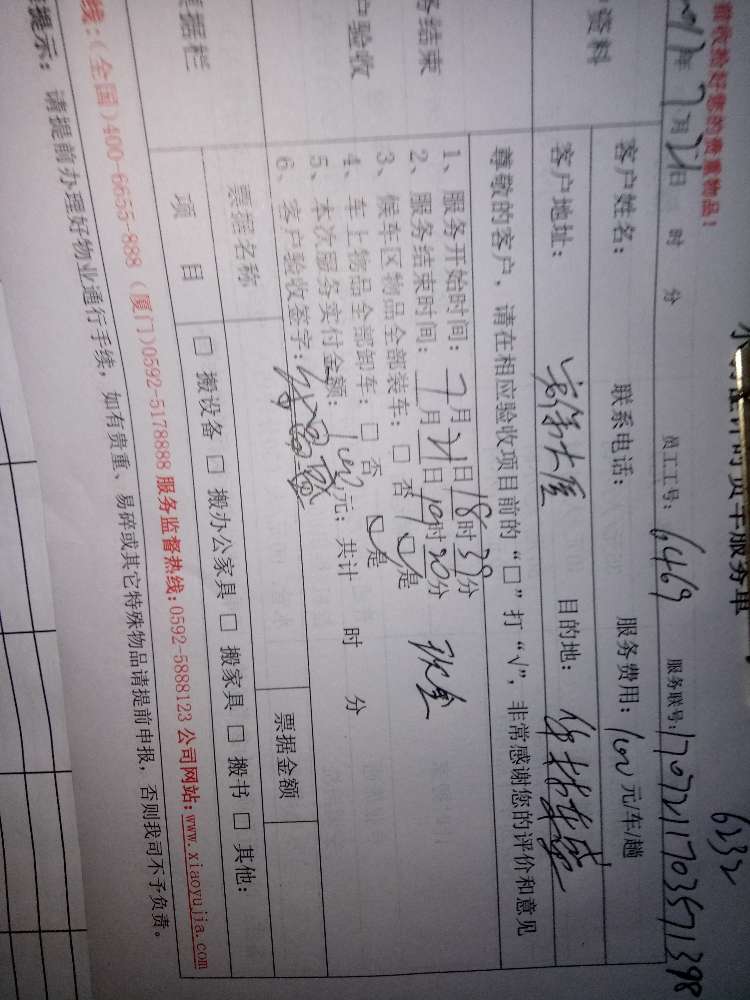 6232
前收拾好您的贵重物品!
17年7月21日 时 分 员工工号: 6469 服务联号: 1707211703571398
资料
客户姓名: 联系电话: 服务费用: 100元/车/趟
客户地址: 目的地:
尊敬的客户, 请在相应验收项目前的“□”打“√”, 非常感谢您的评价和意见
务结束
户验收
1、服务开始时间: 7月21日18时39分
2、服务结束时间: 7月21日19时20分 现金
3、候车区物品全部装车: □否 □是
4、车上物品全部卸车: □否 □是
5、本次服务实付金额: 100元; 共计 时 分
6、客户验收签字:
票据栏
票据名称 票据金额
项目 □搬设备 □搬办公家具 □搬家具 □搬书 □其他:
线: (全国)400-6655-888 (厦门)0592-5178888 服务监督热线:0592-5888123 公司网站:www.xiaoyujia.com
提示: 请提前办理好物业通行手续, 如有贵重、易碎或其它特殊物品请提前申报, 否则我司不予负责。